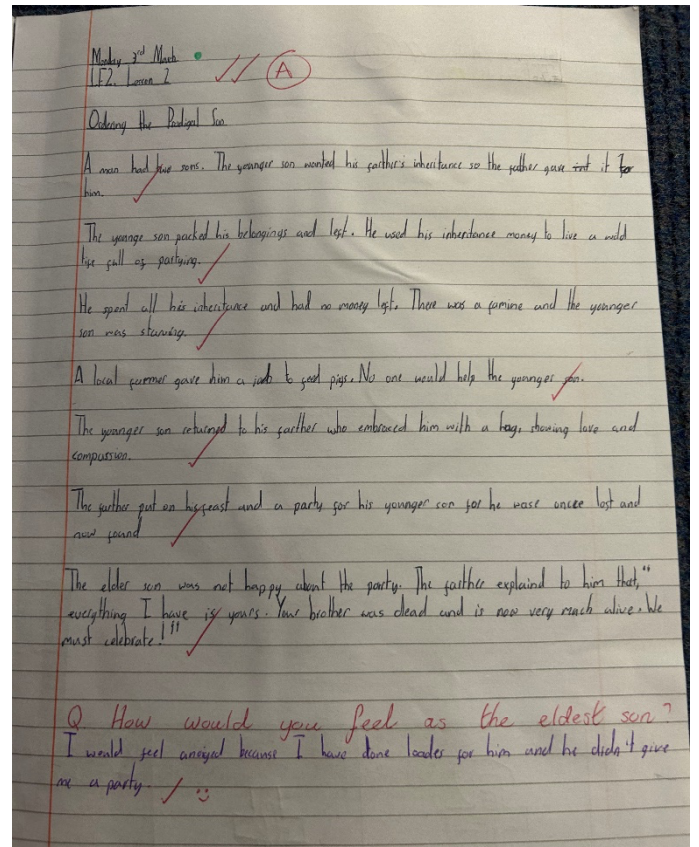 Monday 3rd Mach
LF2. Lesson 2
A
Odering the Prodigal Son
A man had two sons. The younger son wanted his farther's inheritance so the father gave it to
him.
The younge son packed his belongings and left. He used his inheridance money to live a wild
life full of partying.
He spent all his inheritance and had no money left. There was a famine and the younger
son was starving.
A local farmer gave him a job to feed pigs. No one would help the younger son.
The younger son returned to his farther who embraced him with a hug, showing love and
compassion.
The farther put on his feast and a party for his younger son for he wase oncee lost and
now found
The elder son was not happy about the party. The farther explaind to him that, "
everything I have is yours. Your brother was dead and is now very much alive. We
must celebrate!"
Q. How would you feel as the eldest son?
I would feel annoyed because I have done loades for him and he didn't give
me a party.